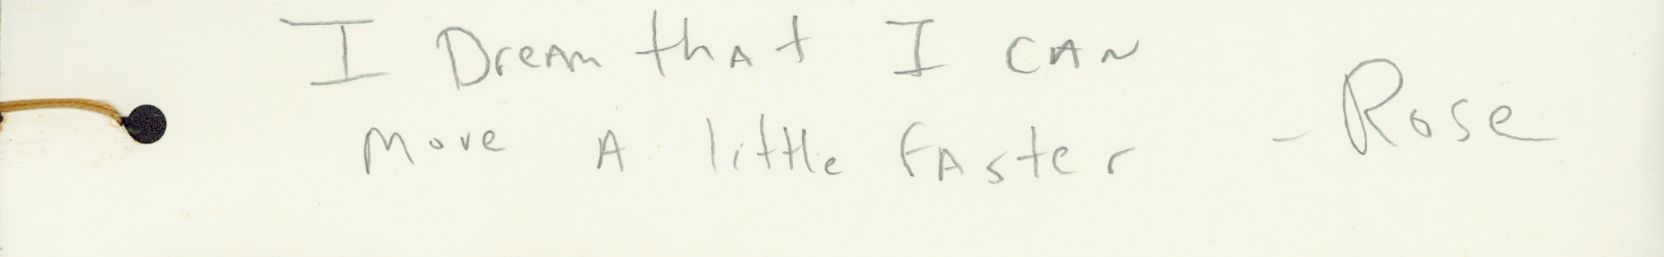 I Dream that I CAN
Move A little FAster
- Rose